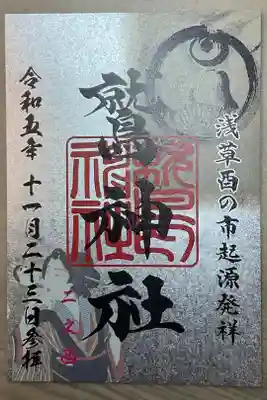 浅草酉の市起源発祥
鷲神社
二之酉
令和五年 十一月二十三日参拝